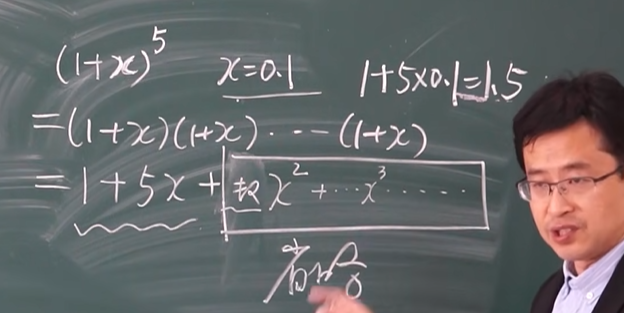 (1+x)^5 x=0.1 1+5×0.1=1.5
=(1+x)(1+x)····(1+x)
=1+5x+ x²+···x³·····